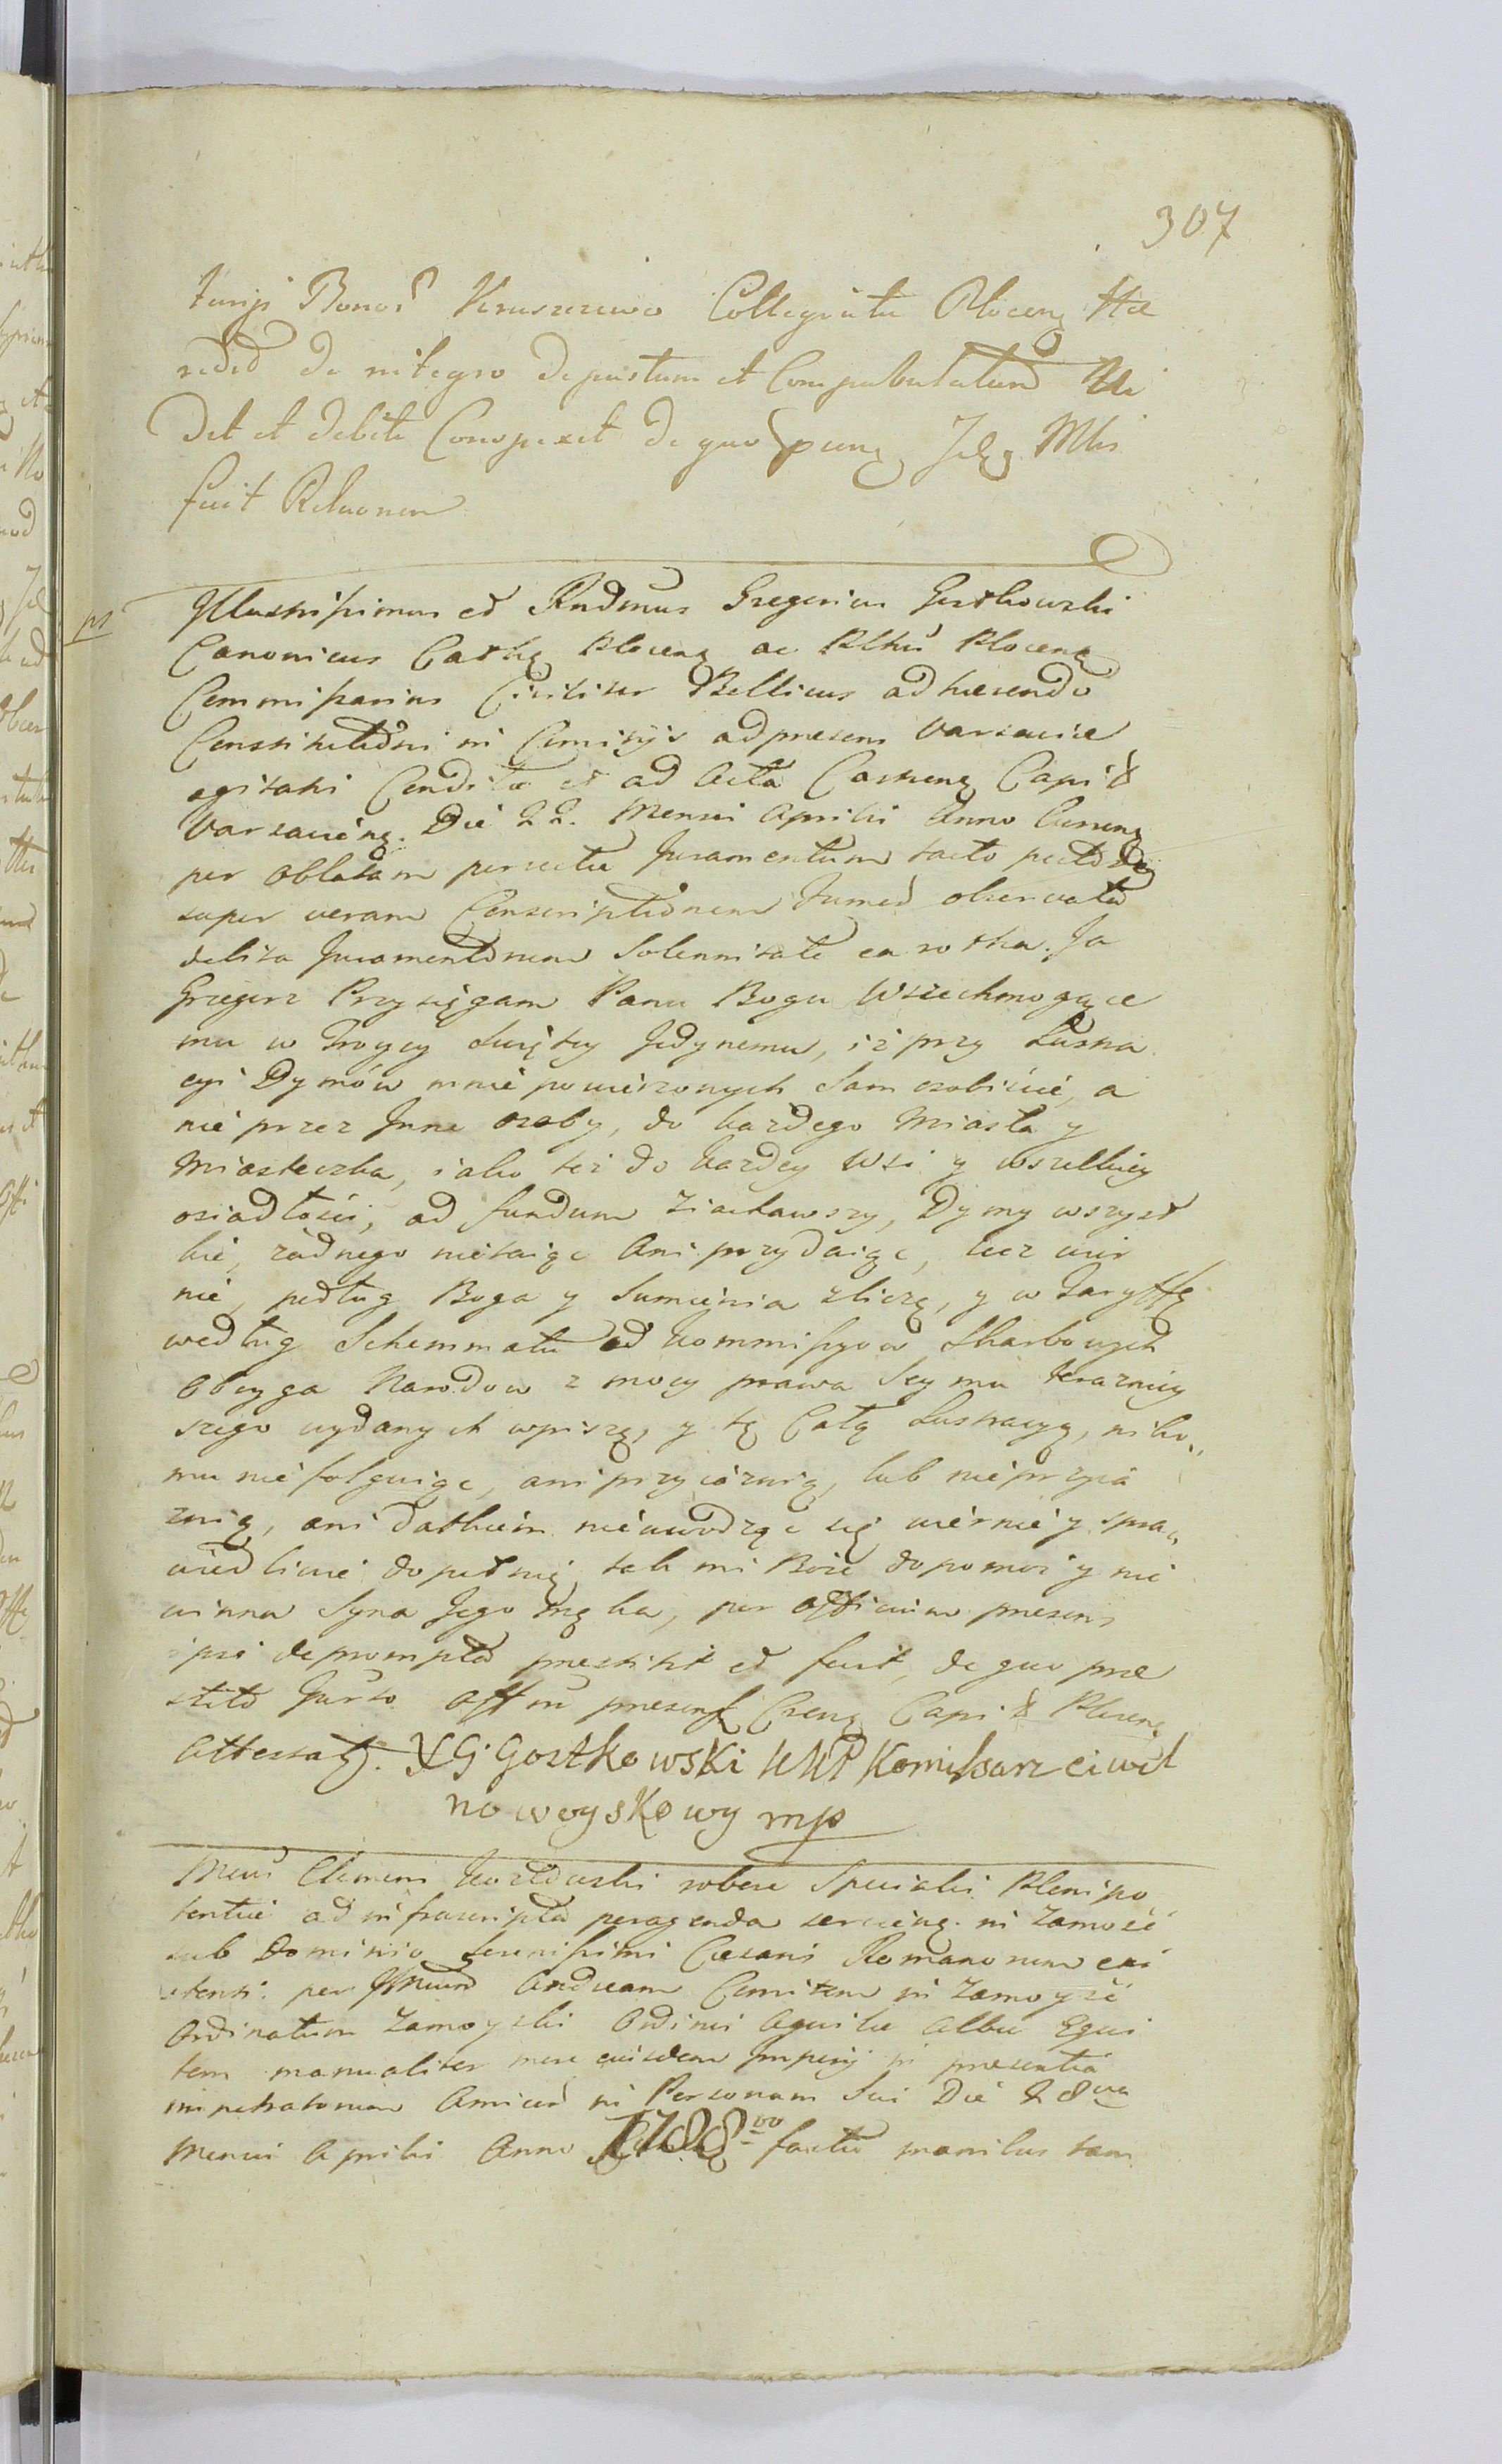 307
Bonor Kruszewo Collegiatae Plocen Hae
red de integro depastum et Compabulatum Vi
dit et debite Conspexit de quo
fuit Relaonem
Illustrissimus et Rndmus Gregorius Gostkowski
Canonicus Cathę Plocenę ac Plttus Plocenę
Commissarius Civiliter Bellicus adhaerendo
Constitutioni in Comitijs ad praesens Varsaviae
agitatis Condita et ad Acta Castrenę Capit
Varsavienę. Die 22. Mensis Aprilis Anno Currenę
per Oblatam porrecta Juramentum tacto pectore
super veram Conscriptionem Fumor observata
debita Juramentorum Solennitate ea rotha. Ja
Grzegorz Przysięgam Panu Bogu Wszechmogące
mu w Troycy Swiętey Jedynemu, iż przy Lustra
cyi Dymów mnie powierzonych Sam osobiscie, a
nie przez Inne osoby, do każdego Miasta y
Miasteczka, iako też do każdey Wsi y wszelkiey
osiadłości, ad fundum ziachawszy, Dymy wszyst
kie, żadnego nietaiąc Ani przydaiąc, lecz wier
nie, podług Boga y Sumienia zliczę, y w Taryffę
według Schemmatu od kommissyow Skarbowych
oboyga Narodow z mocy prawa Seymu teraznieÿ
szego wydanych wpiszę, y tę Całą Lustracyą, niko„
mu nie folguiąc, ani przyiaznią, lub nieprzyia
znią, ani datkiem nieuwodząc się wiernie y spra„
wiedliwie dopełnię, tak mi Boże dopomoż y nie
winna Syna Jego męka, per Officium praesens
ipsi deprompta praestitit et fecit, de quo prae
stito Jurto Offm praesens Csenę Capit Plocenę
Attestatÿ. XG Gostkowski KKP Komissarz ciwil
nowoyskowy mp
Clemens robore Specialis Plenipo
tentiae ad infrascripta peragenda servienę. in Zamość
sub Dominio Serenissimi Caesaris Romanorum exi
stenti: per Andream Comitem in Zamoyść
Ordinatum Zamoyski Ordinis Aquilae Albae Equi
tem manualiter more eiusdem Imperij in praesentia
impetratorum Amicor in Personam Sui Die 28va
Mensis Aprilis Anno 1788vo factae manibus tam